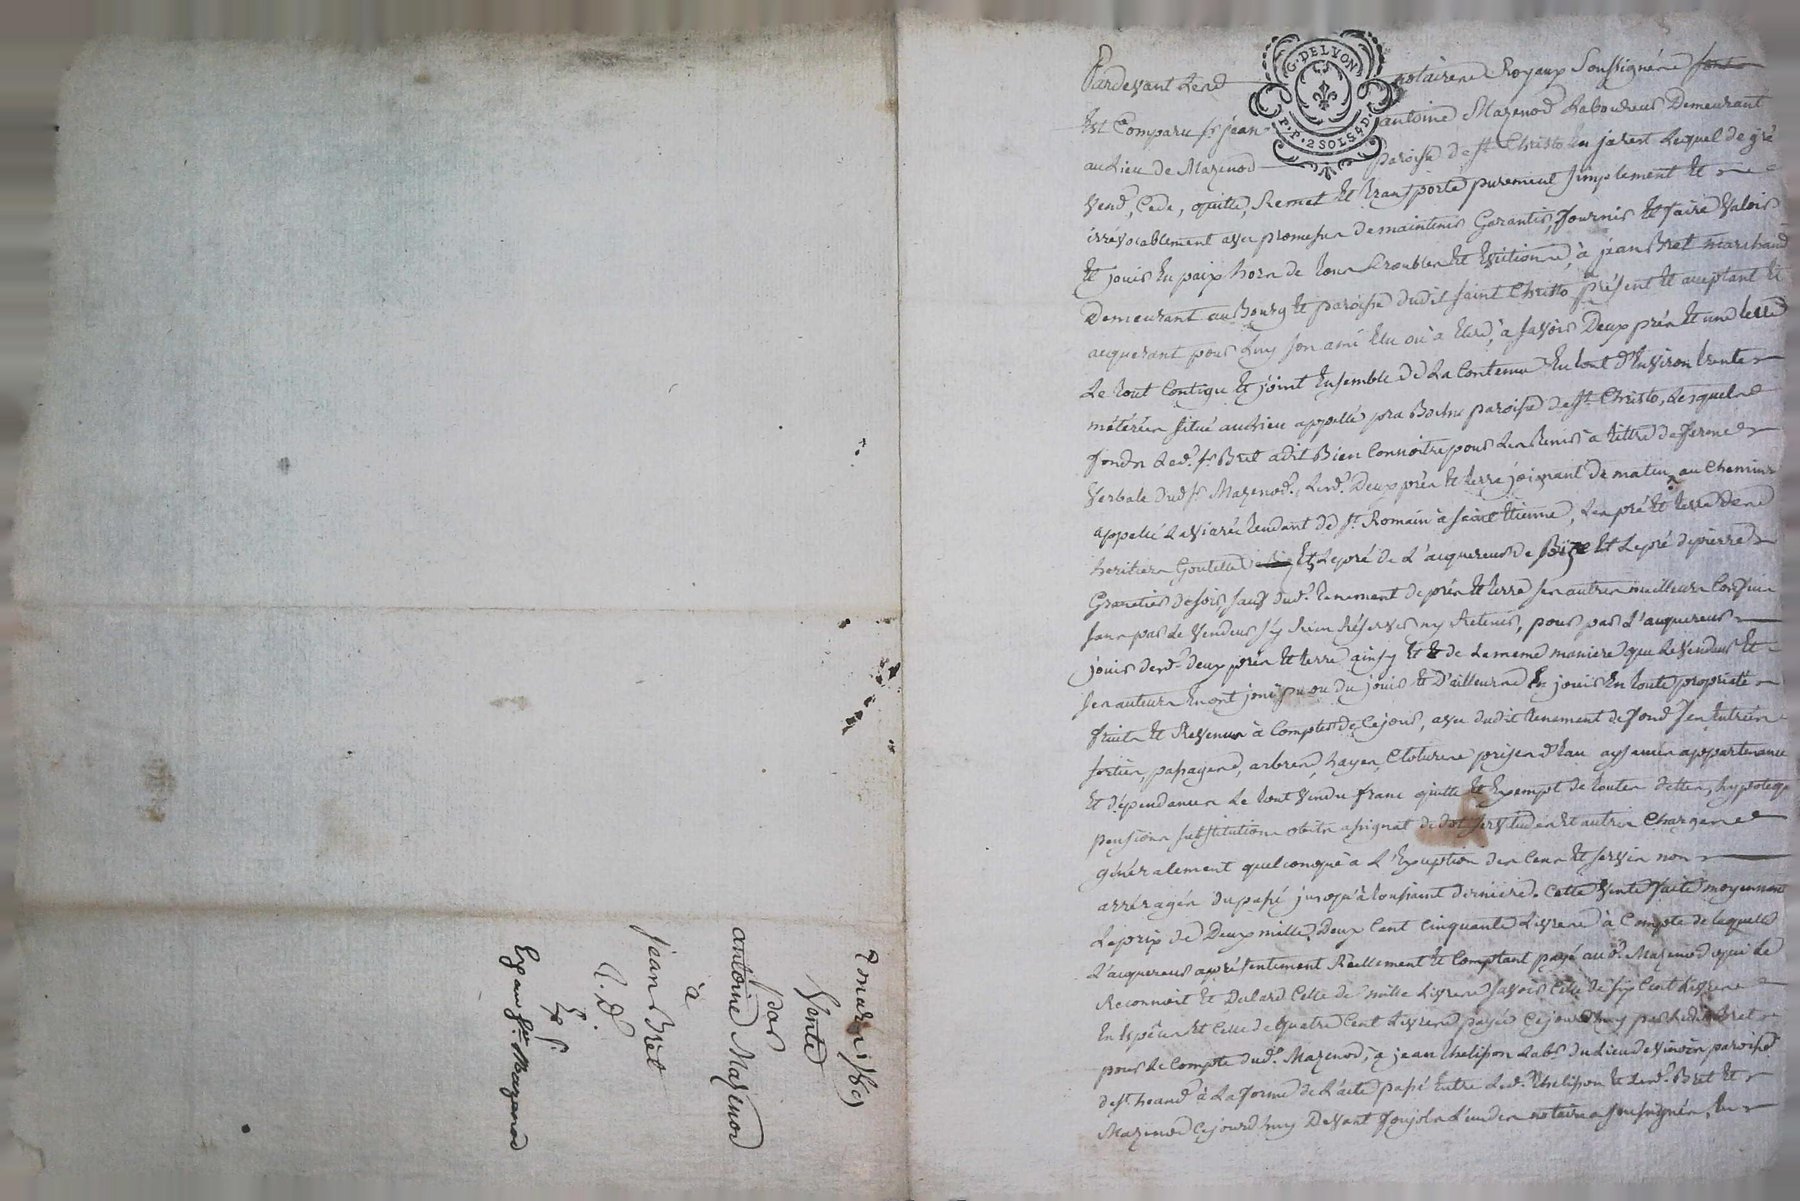 7 mars 1789
Vente
par
antoine Mazenod
à
jean Bret
Exp au Sr. Mazenod
G. DELYON
P. P. 2 SOLS 4 D.
Pardevant Les notaires Royaux Soussignés
Est Comparu sr. jean antoine Mazenod Laboureur Demeurant
au Lieu de Mazenod paroisse de st. Christo en jarest Lequel de gré
vend, Cede, quitte, Remet Et transporte purement simplement Et
irrévocablement avec promesse de maintenir Garantir, fournir Et faire valoir
Et jouir En paix hors de tous troubles Et Evictions, à jean Bret marchand
Demeurant au Bourg Et paroisse dudit saint Christo présent Et aceptant Et
acquerant pour Luy son ami Elu où à Elire, à savoir Deux prés Et une terre
Le tout Contigu Et joint Ensemble de La Contenue En tout d'Environ trente
méterées situé au Lieu appellé pra paroisse de st. Christo, Lesquels
fonds Led. sr. Bret a dit Bien Connoitre pour Les tenir à tittre de ferme
verbale dud. sr. Mazenod, Lesd. Deux prés Et terre joignant de matin au Chemin
appellé La viarée tendant de st. Romain à saint Etienne, Les pré Et terre des
heritiers Goutelle Et Le pré de L'acquereur de Bize Et Le pré de pierre
de soir, sauf dud. tenement de prés Et terre ses autres meilleurs Confins
sans par Le vendeur s'y Rien Réserver ny Retenir, pour par L'acquereur
jouir desd. deux prés Et terre ainsy Et de La meme maniere que Le vendeur Et
ses auteurs En ont joui pu ou du jouir Et D'ailleurs En jouir En toute propriété
fruits Et Revenus à Compter de Ce jour, avec dudit tenement de fond ses Entrées
sorties, passages, arbres, hayes, Clotures prises d'Eau aysances appartenances
Et dépendances Le tout vendu franc quitte Et Exempt de toutes dettes, hypoteque
pensions substitutions obits assignat de dot servitudes Et autres Charges
généralement quelconque à L'Exception des Cens Et servis non
arréragés du passé jusqu'à toussaint derniere. Cette vente faite moyennant
Le prix de Deux mille Deux Cent Cinquante Livres à Compte de laquelle
L'acquereur a présentement Réellement Et Comptant payé aud. Mazenod qui Le
Reconnoit Et Celle de mille Livres savoir Celle de six Cent Livres
En Espèces Et Celle de quatre Cent Livres payée Cejourd'huy par Ledit Bret
pour Le Compte dud. Mazenod, à jean thelisson Lab. du Lieu de paroisse
de st. à La forme de L'acte passé Entre Led. thelisson Et Lesd. Bret Et
Mazenod Cejourd'huy Devant L'un des notaires soussignés, En